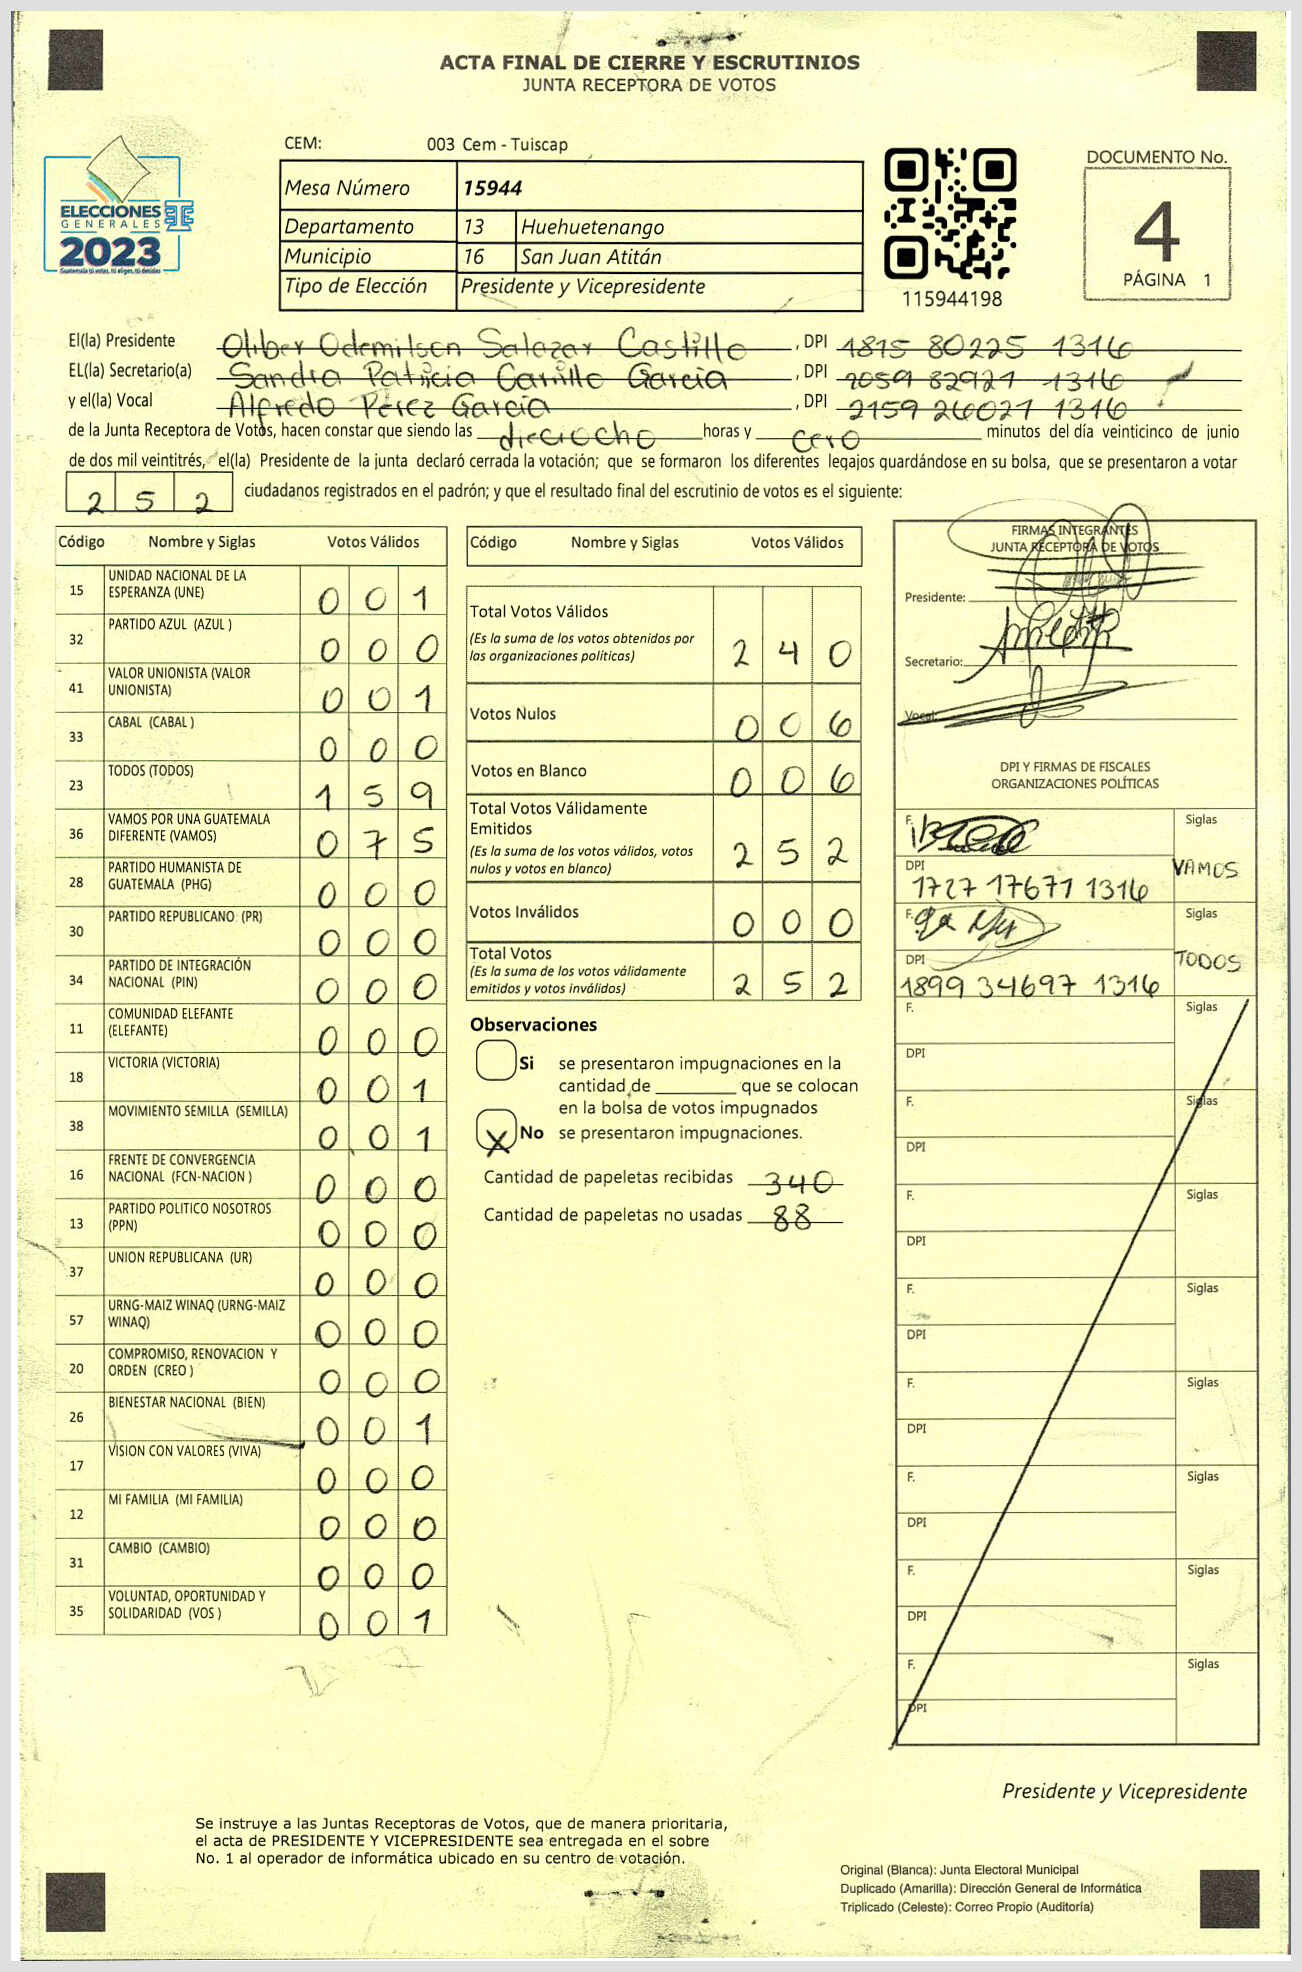 ACTA FINAL DE CIERRE Y ESCRUTINIOS
JUNTA RECEPTORA DE VOTOS
CEM: 003 Cem - Tuiscap
ELECCIONES
GENERALES
2023
Guatemala tú votas, tú eliges, tú decides
Mesa Número 15944
Departamento 13 Huehuetenango
Municipio 16 San Juan Atitán
Tipo de Elección Presidente y Vicepresidente
115944198
DOCUMENTO No.
4
PÁGINA 1
El(la) Presidente Oliber Odemilson Salazar Castillo, DPI 1815 80225 1316
EL(la) Secretario(a) Sandra Patricia Carrillo Garcia, DPI 2059 82921 1316
y el(la) Vocal Alfredo Pérez García, DPI 2159 26021 1316
de la Junta Receptora de Votos, hacen constar que siendo las dieciocho horas y cero minutos del día veinticinco de junio
de dos mil veintitrés, el(la) Presidente de la junta declaró cerrada la votación; que se formaron los diferentes legajos guardándose en su bolsa, que se presentaron a votar
252 ciudadanos registrados en el padrón; y que el resultado final del escrutinio de votos es el siguiente:
Código Nombre y Siglas Votos Válidos
15 UNIDAD NACIONAL DE LA ESPERANZA (UNE) 0 0 1
32 PARTIDO AZUL (AZUL ) 0 0 0
41 VALOR UNIONISTA (VALOR UNIONISTA) 0 0 1
33 CABAL (CABAL ) 0 0 0
23 TODOS (TODOS) 1 5 9
36 VAMOS POR UNA GUATEMALA DIFERENTE (VAMOS) 0 7 5
28 PARTIDO HUMANISTA DE GUATEMALA (PHG) 0 0 0
30 PARTIDO REPUBLICANO (PR) 0 0 0
34 PARTIDO DE INTEGRACIÓN NACIONAL (PIN) 0 0 0
11 COMUNIDAD ELEFANTE (ELEFANTE) 0 0 0
18 VICTORIA (VICTORIA) 0 0 1
38 MOVIMIENTO SEMILLA (SEMILLA) 0 0 1
16 FRENTE DE CONVERGENCIA NACIONAL (FCN-NACION ) 0 0 0
13 PARTIDO POLITICO NOSOTROS (PPN) 0 0 0
37 UNION REPUBLICANA (UR) 0 0 0
57 URNG-MAIZ WINAQ (URNG-MAIZ WINAQ) 0 0 0
20 COMPROMISO, RENOVACION Y ORDEN (CREO ) 0 0 0
26 BIENESTAR NACIONAL (BIEN) 0 0 1
17 VISION CON VALORES (VIVA) 0 0 0
12 MI FAMILIA (MI FAMILIA) 0 0 0
31 CAMBIO (CAMBIO) 0 0 0
35 VOLUNTAD, OPORTUNIDAD Y SOLIDARIDAD (VOS ) 0 0 1
Código Nombre y Siglas Votos Válidos
Total Votos Válidos
(Es la suma de los votos obtenidos por las organizaciones políticas) 2 4 0
Votos Nulos 0 0 6
Votos en Blanco 0 0 6
Total Votos Válidamente Emitidos
(Es la suma de los votos válidos, votos nulos y votos en blanco) 2 5 2
Votos Inválidos 0 0 0
Total Votos
(Es la suma de los votos válidamente emitidos y votos inválidos) 2 5 2
Observaciones
Si se presentaron impugnaciones en la
cantidad de ________ que se colocan
en la bolsa de votos impugnados
X No se presentaron impugnaciones.
Cantidad de papeletas recibidas 340
Cantidad de papeletas no usadas 88
FIRMAS INTEGRANTES
JUNTA RECEPTORA DE VOTOS
Presidente:
Secretario:
Vocal:
DPI Y FIRMAS DE FISCALES
ORGANIZACIONES POLÍTICAS
F. Siglas
DPI VAMOS
1727 17671 1316
F. Siglas
DPI TODOS
1899 34697 1316
F. Siglas
DPI
F. Siglas
DPI
F. Siglas
DPI
F. Siglas
DPI
F. Siglas
DPI
F. Siglas
DPI
F. Siglas
DPI
F. Siglas
DPI
Presidente y Vicepresidente
Se instruye a las Juntas Receptoras de Votos, que de manera prioritaria,
el acta de PRESIDENTE Y VICEPRESIDENTE sea entregada en el sobre
No. 1 al operador de informática ubicado en su centro de votación.
Original (Blanca): Junta Electoral Municipal
Duplicado (Amarilla): Dirección General de Informática
Triplicado (Celeste): Correo Propio (Auditoría)